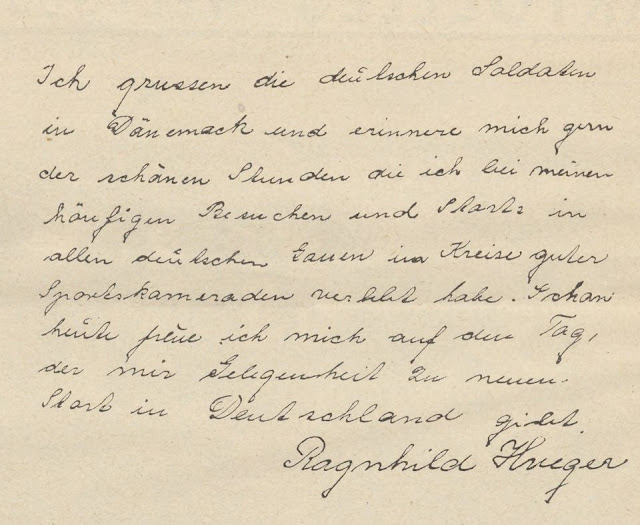 Ich grussen die deütschen Soldaten
in Dänemack und erinnere mich gern
der schönen Stunden die ich bei meinen
häufigen Besuchen und Starts in
allen deütschen Gauen im Kreise guter
Sportskameraden verlebt habe. Schon
heüte freüe ich mich auf den Tag,
der mir Gelegenheit zu neuen
Start in Deutschland gibt.
Ragnhild Hveger